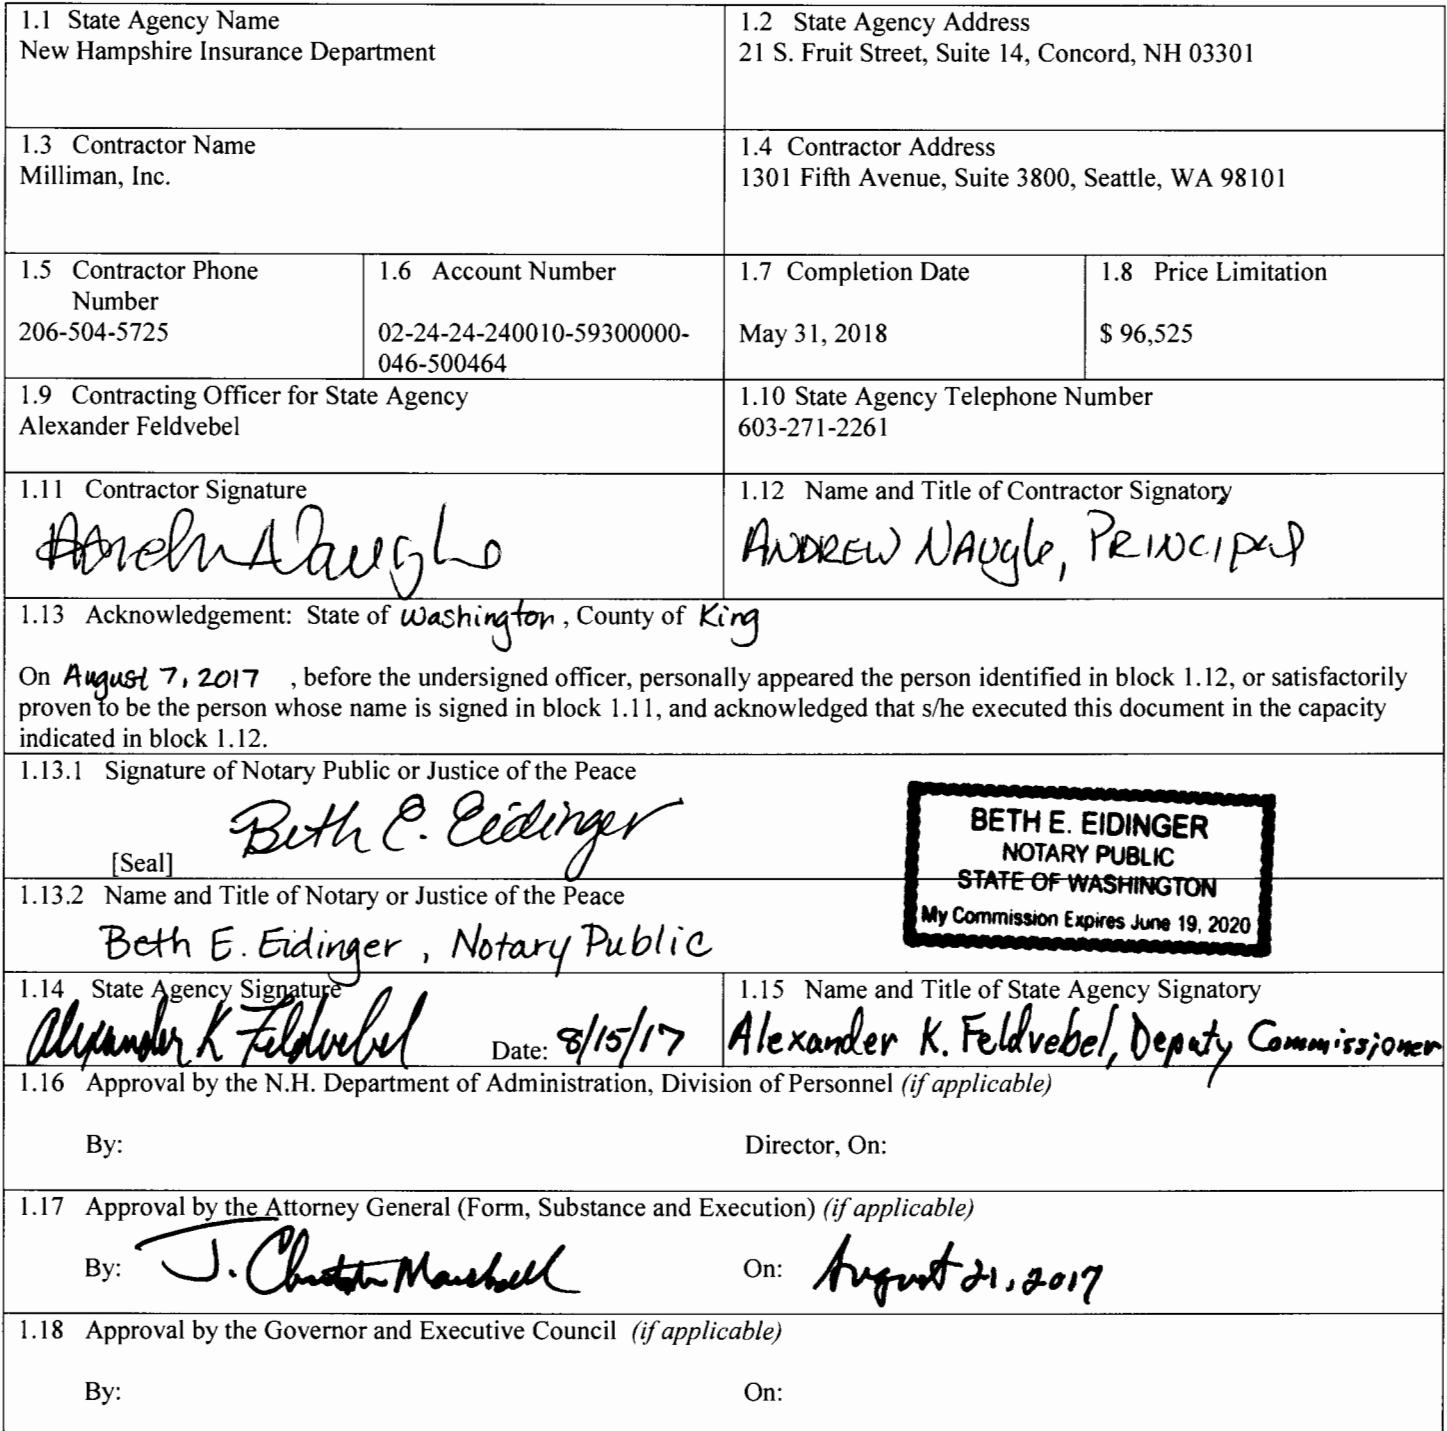 1.1 State Agency Name
New Hampshire Insurance Department
1.2 State Agency Address
21 S. Fruit Street, Suite 14, Concord, NH 03301
1.3 Contractor Name
Milliman, Inc.
1.4 Contractor Address
1301 Fifth Avenue, Suite 3800, Seattle, WA 98101
1.5 Contractor Phone
Number
206-504-5725
1.6 Account Number
02-24-24-240010-59300000-
046-500464
1.7 Completion Date
May 31, 2018
1.8 Price Limitation
$ 96,525
1.9 Contracting Officer for State Agency
Alexander Feldvebel
1.10 State Agency Telephone Number
603-271-2261
1.11 Contractor Signature
Andrew Naugle
1.12 Name and Title of Contractor Signatory
ANDREW NAUgle, PRINCIPAL
1.13 Acknowledgement: State of Washington, County of King
On August 7, 2017 , before the undersigned officer, personally appeared the person identified in block 1.12, or satisfactorily
proven to be the person whose name is signed in block 1.11, and acknowledged that s/he executed this document in the capacity
indicated in block 1.12.
1.13.1 Signature of Notary Public or Justice of the Peace
Beth E. Eidinger
[Seal]
BETH E. EIDINGER
NOTARY PUBLIC
STATE OF WASHINGTON
My Commission Expires June 19, 2020
1.13.2 Name and Title of Notary or Justice of the Peace
Beth E. Eidinger, Notary Public
1.14 State Agency Signature
Alexander K Feldvebel Date: 8/15/17
1.15 Name and Title of State Agency Signatory
Alexander K. Feldvebel, Deputy Commissioner
1.16 Approval by the N.H. Department of Administration, Division of Personnel (if applicable)
By: Director, On:
1.17 Approval by the Attorney General (Form, Substance and Execution) (if applicable)
By: J. Marshall On: August 21, 2017
1.18 Approval by the Governor and Executive Council (if applicable)
By: On: